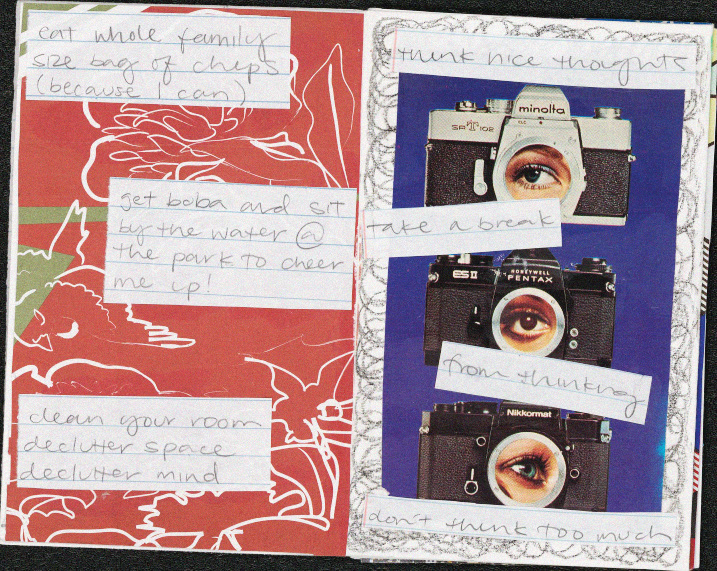 eat whole family
size bag of chips
(because I can)
get boba and sit
by the water @
the park to cheer
me up!
clean your room
declutter space
declutter mind
think nice thoughts
minolta
SRT102
take a break
ES II
HONEYWELL
PENTAX
from thinking
Nikkormat
don't think too much